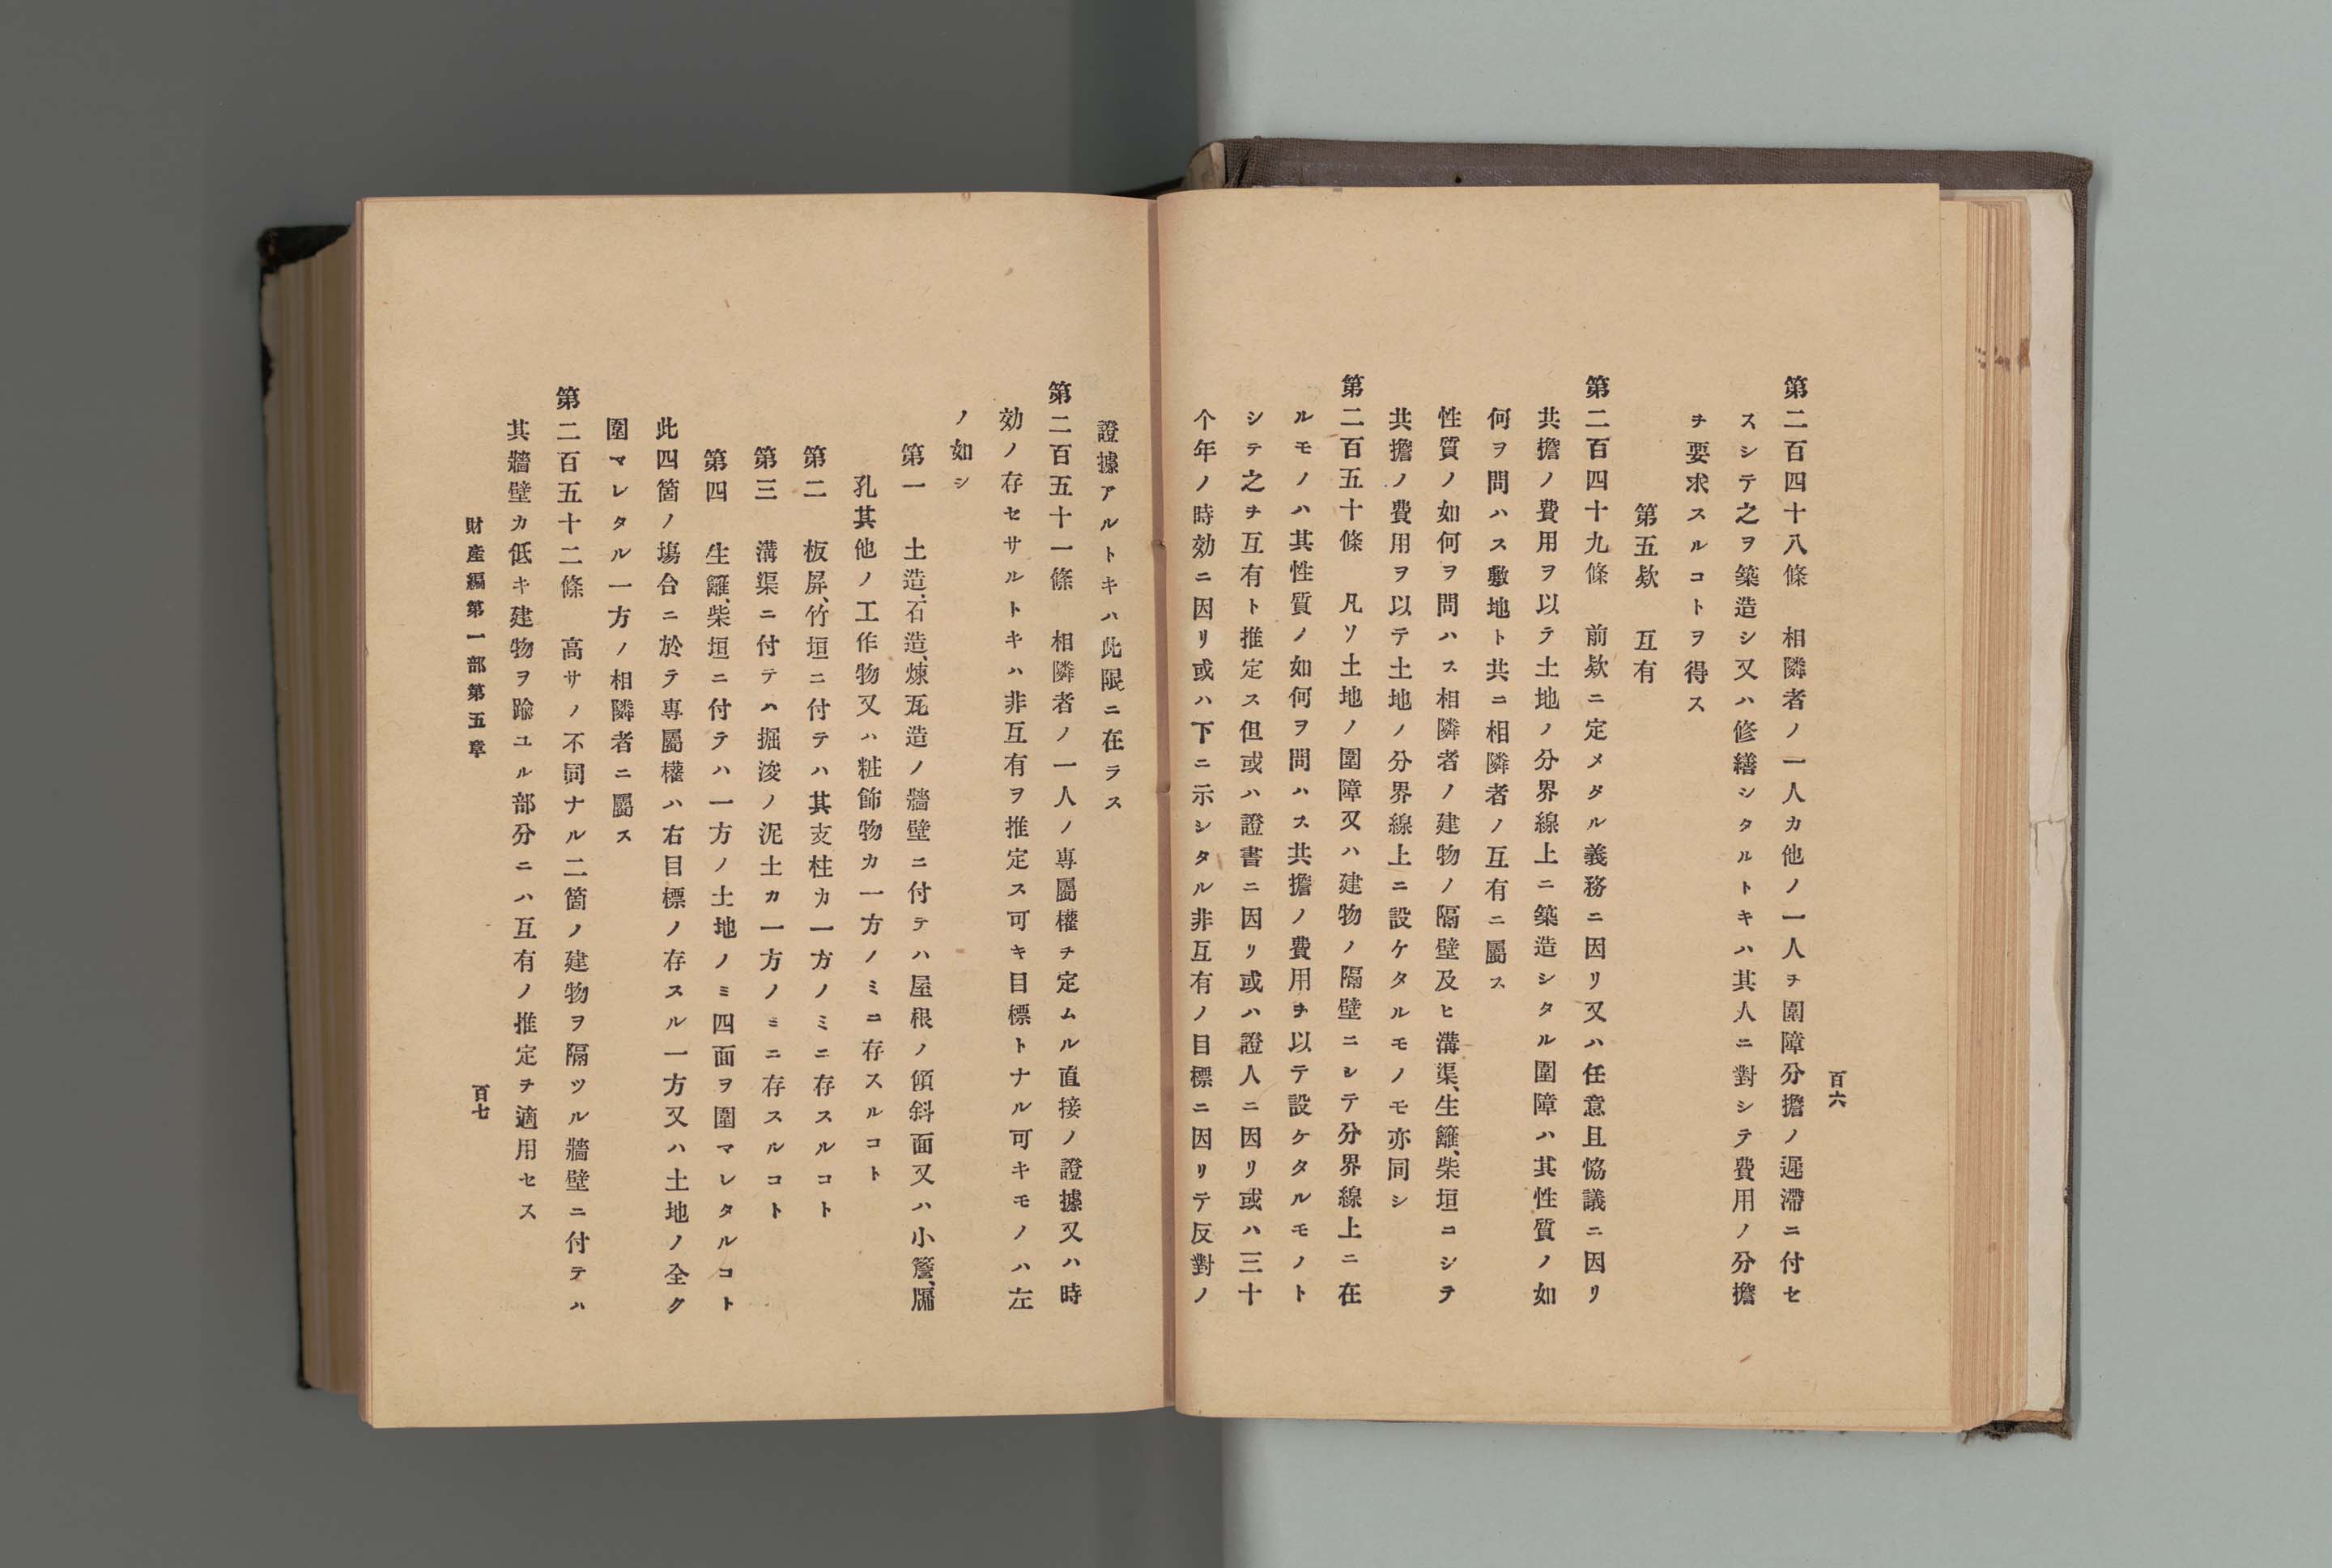 百六
第二百四十八條　相隣者ノ一人カ他ノ一人ヲ圍障分擔ノ遲滯ニ付セ
スシテ之ヲ築造シ又ハ修繕シタルトキハ其人ニ對シテ費用ノ分擔
ヲ要求スルコトヲ得ス
第五欵　互有
第二百四十九條　前欵ニ定メタル義務ニ因リ又ハ任意且恊議ニ因リ
共擔ノ費用ヲ以テ土地ノ分界線上ニ築造シタル圍障ハ其性質ノ如
何ヲ問ハス敷地ト共ニ相隣者ノ互有ニ屬ス
性質ノ如何ヲ問ハス相隣者ノ建物ノ隔壁及ヒ溝渠、生籬、柴垣ニシテ
共擔ノ費用ヲ以テ土地ノ分界線上ニ設ケタルモノモ亦同シ
第二百五十條　凡ソ土地ノ圍障又ハ建物ノ隔壁ニシテ分界線上ニ在
ルモノハ其性質ノ如何ヲ問ハス共擔ノ費用ヲ以テ設ケタルモノト
シテ之ヲ互有ト推定ス但或ハ證書ニ因リ或ハ證人ニ因リ或ハ三十
个年ノ時効ニ因リ或ハ下ニ示シタル非互有ノ目標ニ因リテ反對ノ
證據アルトキハ此限ニ在ラス
第二百五十一條　相隣者ノ一人ノ專屬權ヲ定ムル直接ノ證據又ハ時
効ノ存セサルトキハ非互有ヲ推定ス可キ目標トナル可キモノハ左
ノ如シ
第一　土造、石造、煉瓦造ノ牆壁ニ付テハ屋根ノ傾斜面又ハ小簷、牖
孔其他ノ工作物又ハ粧飾物カ一方ノミニ存スルコト
第二　板屏、竹垣ニ付テハ其支柱カ一方ノミニ存スルコト
第三　溝渠ニ付テハ掘浚ノ泥土カ一方ノミニ存スルコト
第四　生籬、柴垣ニ付テハ一方ノ土地ノミ四面ヲ圍マレタルコト
此四箇ノ塲合ニ於テ專屬權ハ右目標ノ存スル一方又ハ土地ノ全ク
圍マレタル一方ノ相隣者ニ屬ス
第二百五十二條　高サノ不同ナル二箇ノ建物ヲ隔ツル牆壁ニ付テハ
其牆壁カ低キ建物ヲ踰ユル部分ニハ互有ノ推定ヲ適用セス
財産編第一部第五章
百七